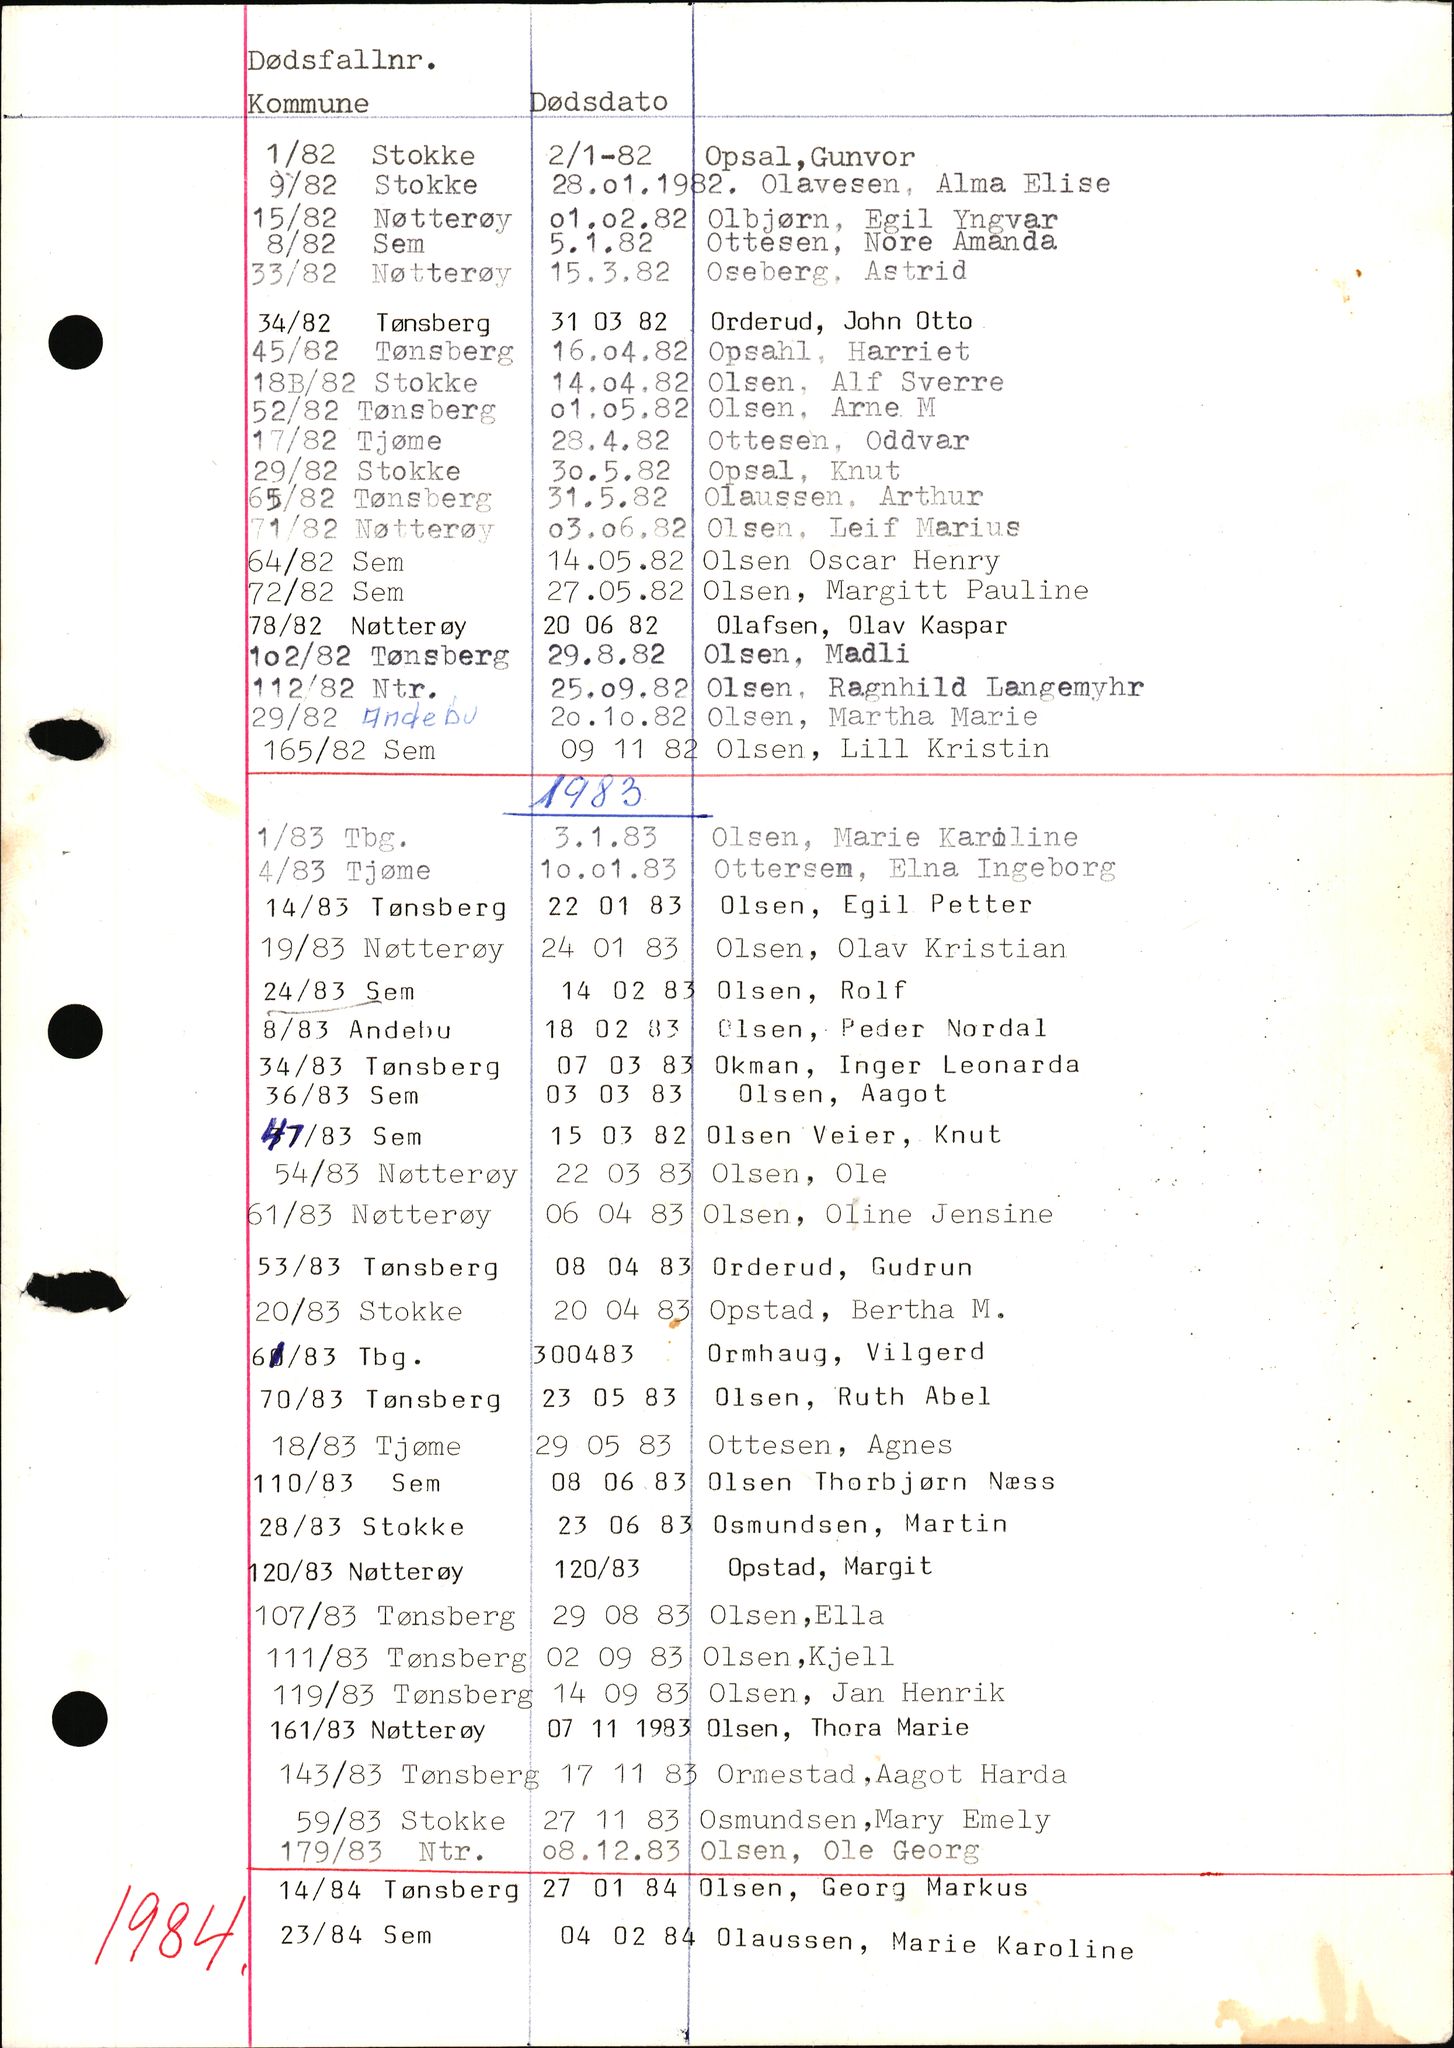 Dødsfallnr.
Kommune Dødsdato
1/82 Stokke 2/1-82 Opsal,Gunvor
9/82 Stokke 28.o1.1982. Olavesen, Alma Elise
15/82 Nøtterøy o1.o2.82 Olbjørn, Egil Yngvar
8/82 Sem 5.1.82 Ottesen, Nore Amanda
33/82 Nøtterøy 15.3.82 Oseberg, Astrid
34/82 Tønsberg 31 03 82 Orderud, John Otto
45/82 Tønsberg 16.o4.82 Opsahl, Harriet
18B/82 Stokke 14.o4.82 Olsen, Alf Sverre
52/82 Tønsberg o1.o5.82 Olsen, Arne M
17/82 Tjøme 28.4.82 Ottesen, Oddvar
29/82 Stokke 3o.5.82 Opsal, Knut
65/82 Tønsberg 31.5.82 Olaussen, Arthur
71/82 Nøtterøy o3.o6.82 Olsen, Leif Marius
64/82 Sem 14.05.82 Olsen Oscar Henry
72/82 Sem 27.05.82 Olsen, Margitt Pauline
78/82 Nøtterøy 20 06 82 Olafsen, Olav Kaspar
1o2/82 Tønsberg 29.8.82 Olsen, Madli
112/82 Ntr. 25.o9.82 Olsen, Ragnhild Langemyhr
29/82 Andebu 2o.1o.82 Olsen, Martha Marie
165/82 Sem 09 11 82 Olsen, Lill Kristin
1983
1/83 Tbg. 3.1.83 Olsen, Marie Karoline
4/83 Tjøme 1o.o1.83 Ottersem, Elna Ingeborg
14/83 Tønsberg 22 01 83 Olsen, Egil Petter
19/83 Nøtterøy 24 01 83 Olsen, Olav Kristian
24/83 Sem 14 02 83 Olsen, Rolf
8/83 Andebu 18 02 83 Olsen, Peder Nordal
34/83 Tønsberg 07 03 83 Okman, Inger Leonarda
36/83 Sem 03 03 83 Olsen, Aagot
47/83 Sem 15 03 82 Olsen Veier, Knut
54/83 Nøtterøy 22 03 83 Olsen, Ole
61/83 Nøtterøy 06 04 83 Olsen, Oline Jensine
53/83 Tønsberg 08 04 83 Orderud, Gudrun
20/83 Stokke 20 04 83 Opstad, Bertha M.
61/83 Tbg. 300483 Ormhaug, Vilgerd
70/83 Tønsberg 23 05 83 Olsen, Ruth Abel
18/83 Tjøme 29 05 83 Ottesen, Agnes
110/83 Sem 08 06 83 Olsen Thorbjørn Næss
28/83 Stokke 23 06 83 Osmundsen, Martin
120/83 Nøtterøy 120/83 Opstad, Margit
107/83 Tønsberg 29 08 83 Olsen,Ella
111/83 Tønsberg 02 09 83 Olsen,Kjell
119/83 Tønsberg 14 09 83 Olsen, Jan Henrik
161/83 Nøtterøy 07 11 1983 Olsen, Thora Marie
143/83 Tønsberg 17 11 83 Ormestad,Aagot Harda
59/83 Stokke 27 11 83 Osmundsen,Mary Emely
179/83 Ntr. o8.12.83 Olsen, Ole Georg
14/84 Tønsberg 27 01 84 Olsen, Georg Markus
1984.
23/84 Sem 04 02 84 Olaussen, Marie Karoline